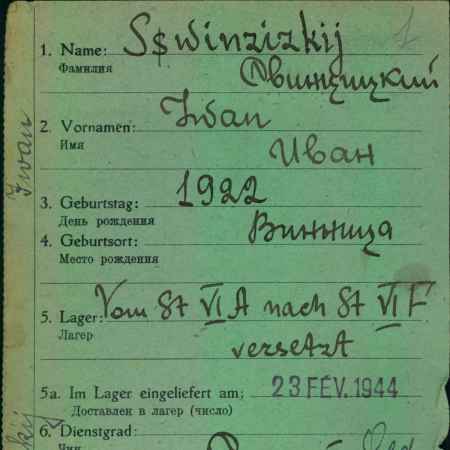 1. Name: Sswinzizkij
Фамилия
1
2. Vornamen: Iwan
Имя
Иван
3. Geburtstag: 1922
День рождения
Винница
4. Geburtsort:
Место рождения
5. Lager: Vom St VI A nach St VI F
Лагерь
versetzt
5a. Im Lager eingeliefert am: 23 FÉV. 1944
Доставлен в лагерь (число)
6. Dienstgrad:
Чин
Iwan